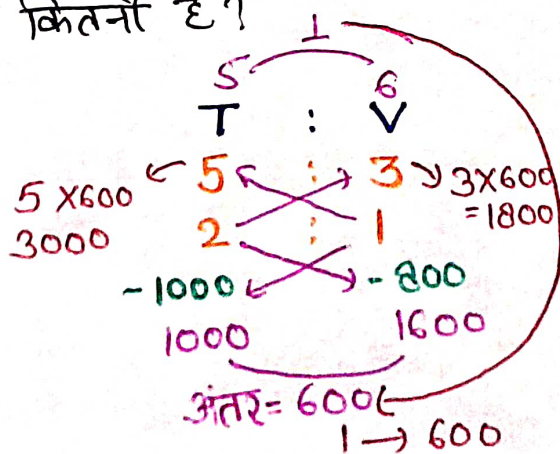 कितनी है?
1
5 6
T : V
5 : 3
5 x 600
3000
3x600
=1800
2 : 1
-1000 -800
1000 1600
अंतर = 600
1 → 600